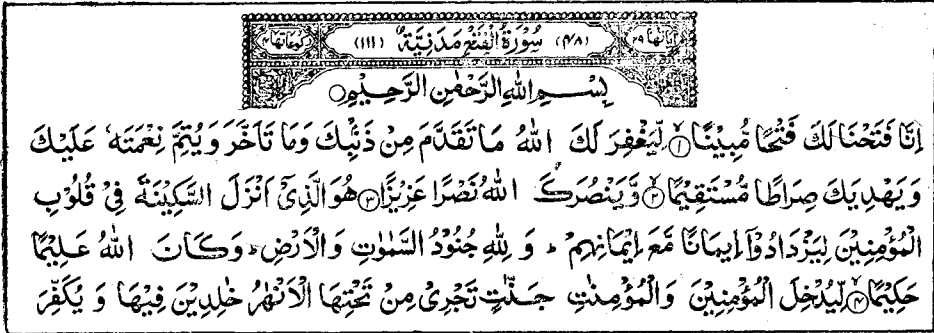 اٰیاتها ۲۹ (۴۸) سُوْرَةُ الْفَتْحِ مَدَنِیَّةٌ (۱۱۱) رکوعاتها ۴
بِسْمِ اللهِ الرَّحْمٰنِ الرَّحِیْمِ
اِنَّا فَتَحْنَا لَكَ فَتْحًا مُّبِیْنًا ۱ لِّیَغْفِرَ لَكَ اللهُ مَا تَقَدَّمَ مِنْ ذَنْۢبِكَ وَمَا تَاَخَّرَ وَیُتِمَّ نِعْمَتَهٗ عَلَیْكَ
وَیَهْدِیَكَ صِرَاطًا مُّسْتَقِیْمًا ۲ وَّیَنْصُرَكَ اللهُ نَصْرًا عَزِیْزًا ۳ هُوَ الَّذِیْۤ اَنْزَلَ السَّكِیْنَةَ فِیْ قُلُوْبِ
الْمُؤْمِنِیْنَ لِیَزْدَادُوْۤا اِیْمَانًا مَّعَ اِیْمَانِهِمْ ؕ وَلِلّٰهِ جُنُوْدُ السَّمٰوٰتِ وَالْاَرْضِ ؕ وَكَانَ اللهُ عَلِیْمًا
حَكِیْمًا ۴ لِّیُدْخِلَ الْمُؤْمِنِیْنَ وَالْمُؤْمِنٰتِ جَنّٰتٍ تَجْرِیْ مِنْ تَحْتِهَا الْاَنْهٰرُ خٰلِدِیْنَ فِیْهَا وَیُكَفِّرَ